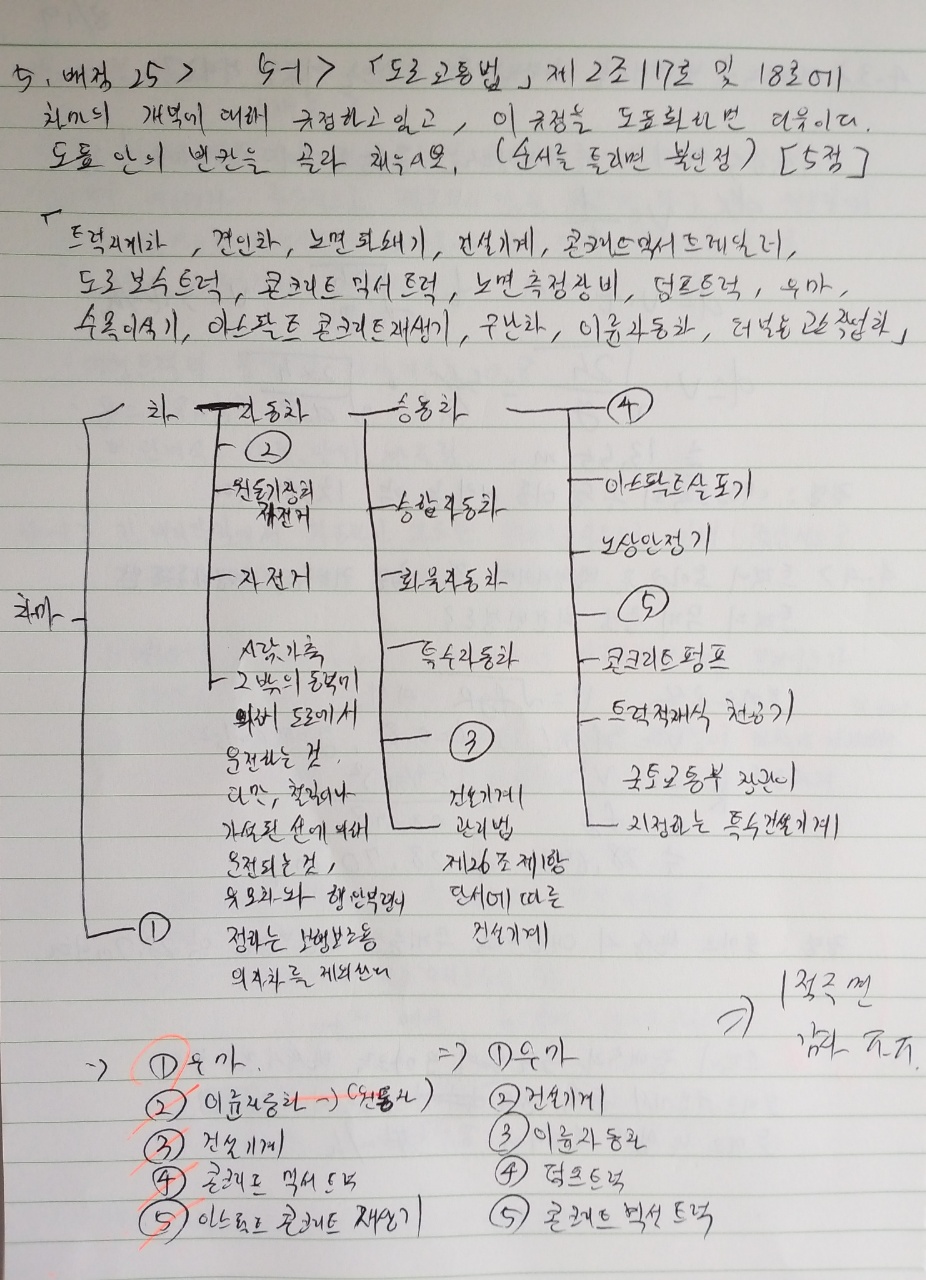 5. 배점 25> 5-1> 「도로교통법」 제2조 17호 및 18호에
차마의 개념에 대해 규정하고 있고, 이 규정을 도표화하면 다음이다.
도표 안의 빈칸을 골라 채우시오. (순서를 틀리면 불인정) [5점]
「트럭지게차, 견인차, 노면파쇄기, 건설기계, 콘크리트믹서트레일러,
도로보수트럭, 콘크리트믹서트럭, 노면측정장비, 덤프트럭, 우마,
수목이식기, 아스팔트 콘크리트재생기, 구난차, 이륜자동차, 터널용 고소작업차」
차마
차 자동차 승용차 ④
②
원동기장치
자전거
자전거
사람, 가축
그 밖의 동력에
의해 도로에서
운전하는 것.
다만, 철길이나
가설된 선에 의해
운전되는 것,
유모차와 행안부령이
정하는 보행보조용
의자차를 제외한다
①
승합자동차
화물자동차
특수자동차
③
건설기계
관리법
제26조 제1항
단서에 따른
건설기계
아스팔트살포기
노상안정기
⑤
콘크리트펌프
트럭적재식 천공기
국토교통부 장관이
지정하는 특수건설기계
=> 1점주면
감사 ㅠㅠ.
-> ① 우마.
② 이륜자동차 -> (원동차)
③ 건설기계
④ 콘크리트 믹서트럭
⑤ 아스팔트 콘크리트 재생기
=> ① 우마
② 건설기계
③ 이륜자동차
④ 덤프트럭
⑤ 콘크리트 믹서 트럭